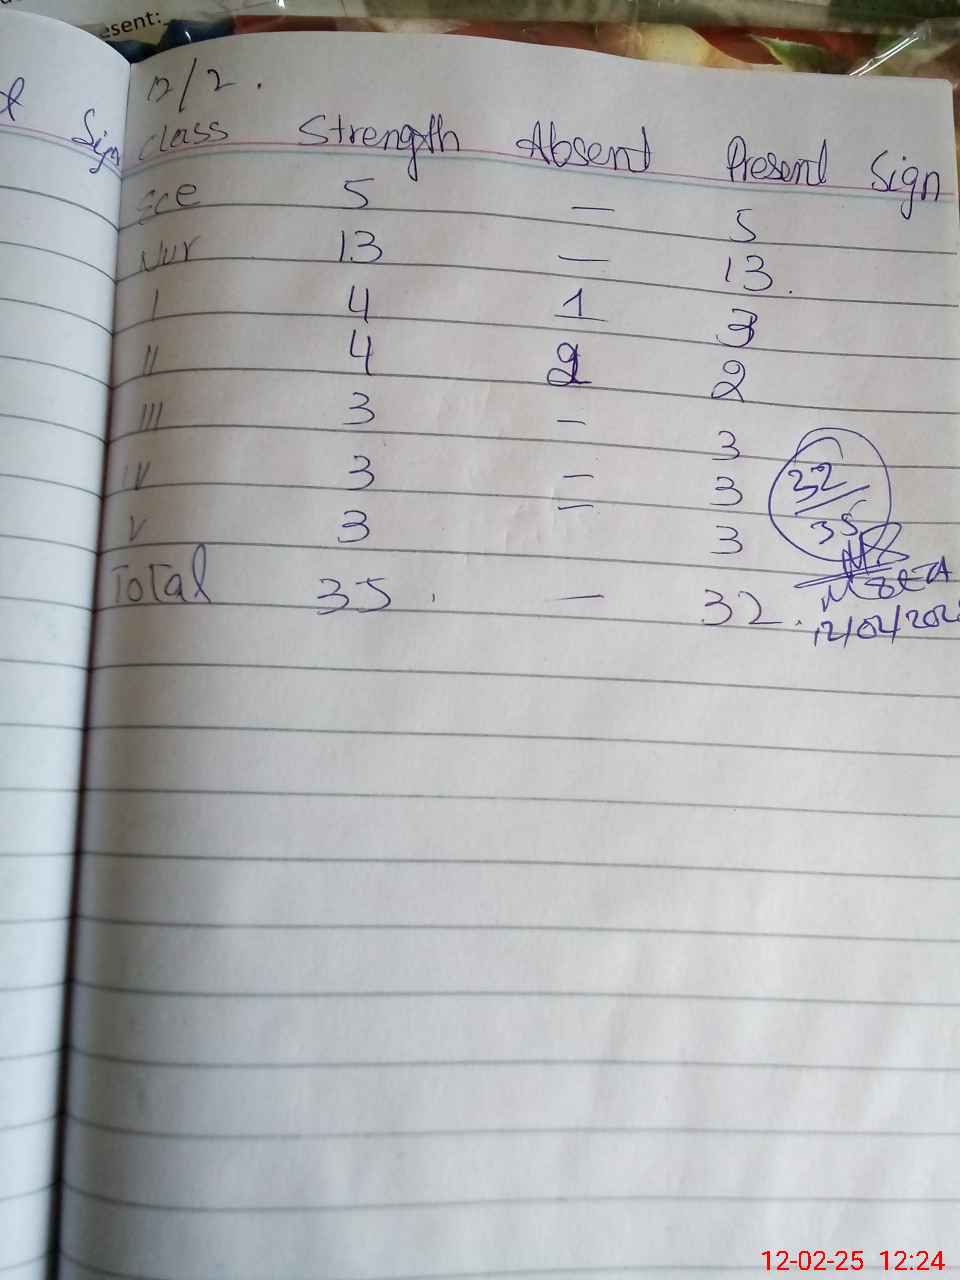 esent:
12/2.
Sign
class Strength Absent Present Sign
ece 5 — 5
Nur 13 — 13.
I 4 1 3
II 4 2 2
III 3 — 3
IV 3 — 3
V 3 — 3
32/35
Total 35. — 32.
12/02/202
12-02-25 12:24